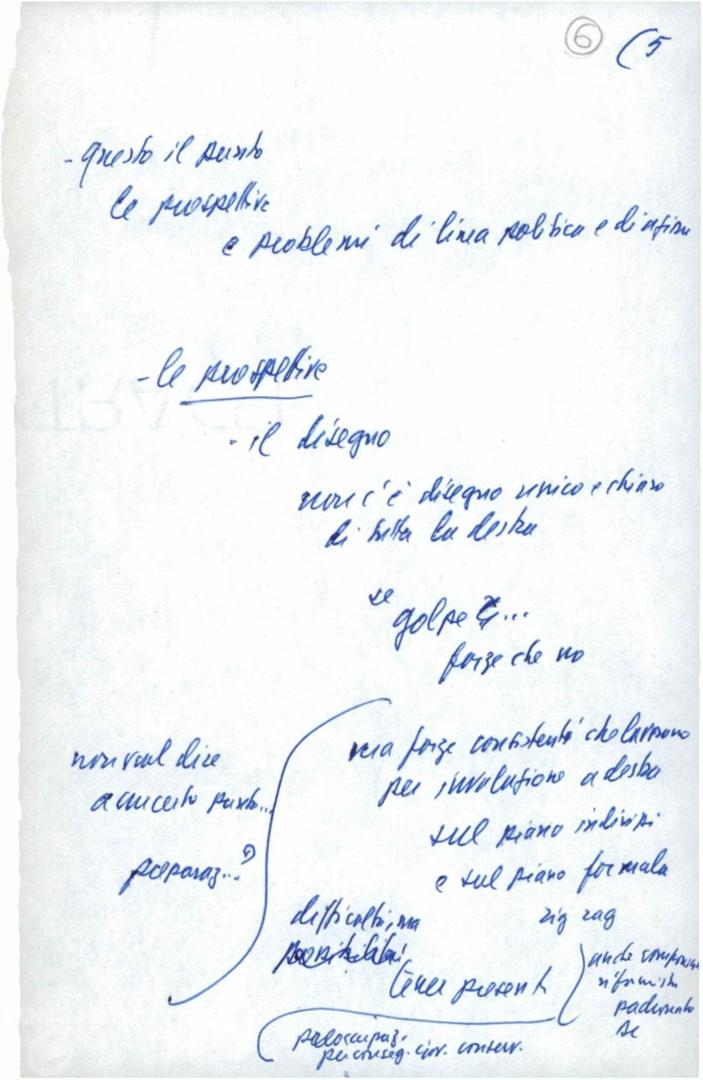 6 (5
- questo il punto
le prospettive
e problemi di linea politica e di azione
- le prospettive
- il disegno
non c'è disegno unico e chiaro
di tutta la destra
se
golpe ...
forze che no
ma forze consistenti che lavorano
per involuzione a destra
sul piano indirizzi
e sul piano formula
zig zag
non vuol dire
a un certo punto...
preparaz...?
difficoltà, ma
possibilità,
tener presenti
anche
riformista
padronato
preoccupaz.
per conseg. conserv.